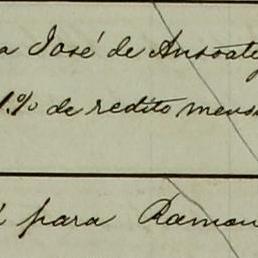 a José de Ansoateg
1.% de redito mens
para Ramon